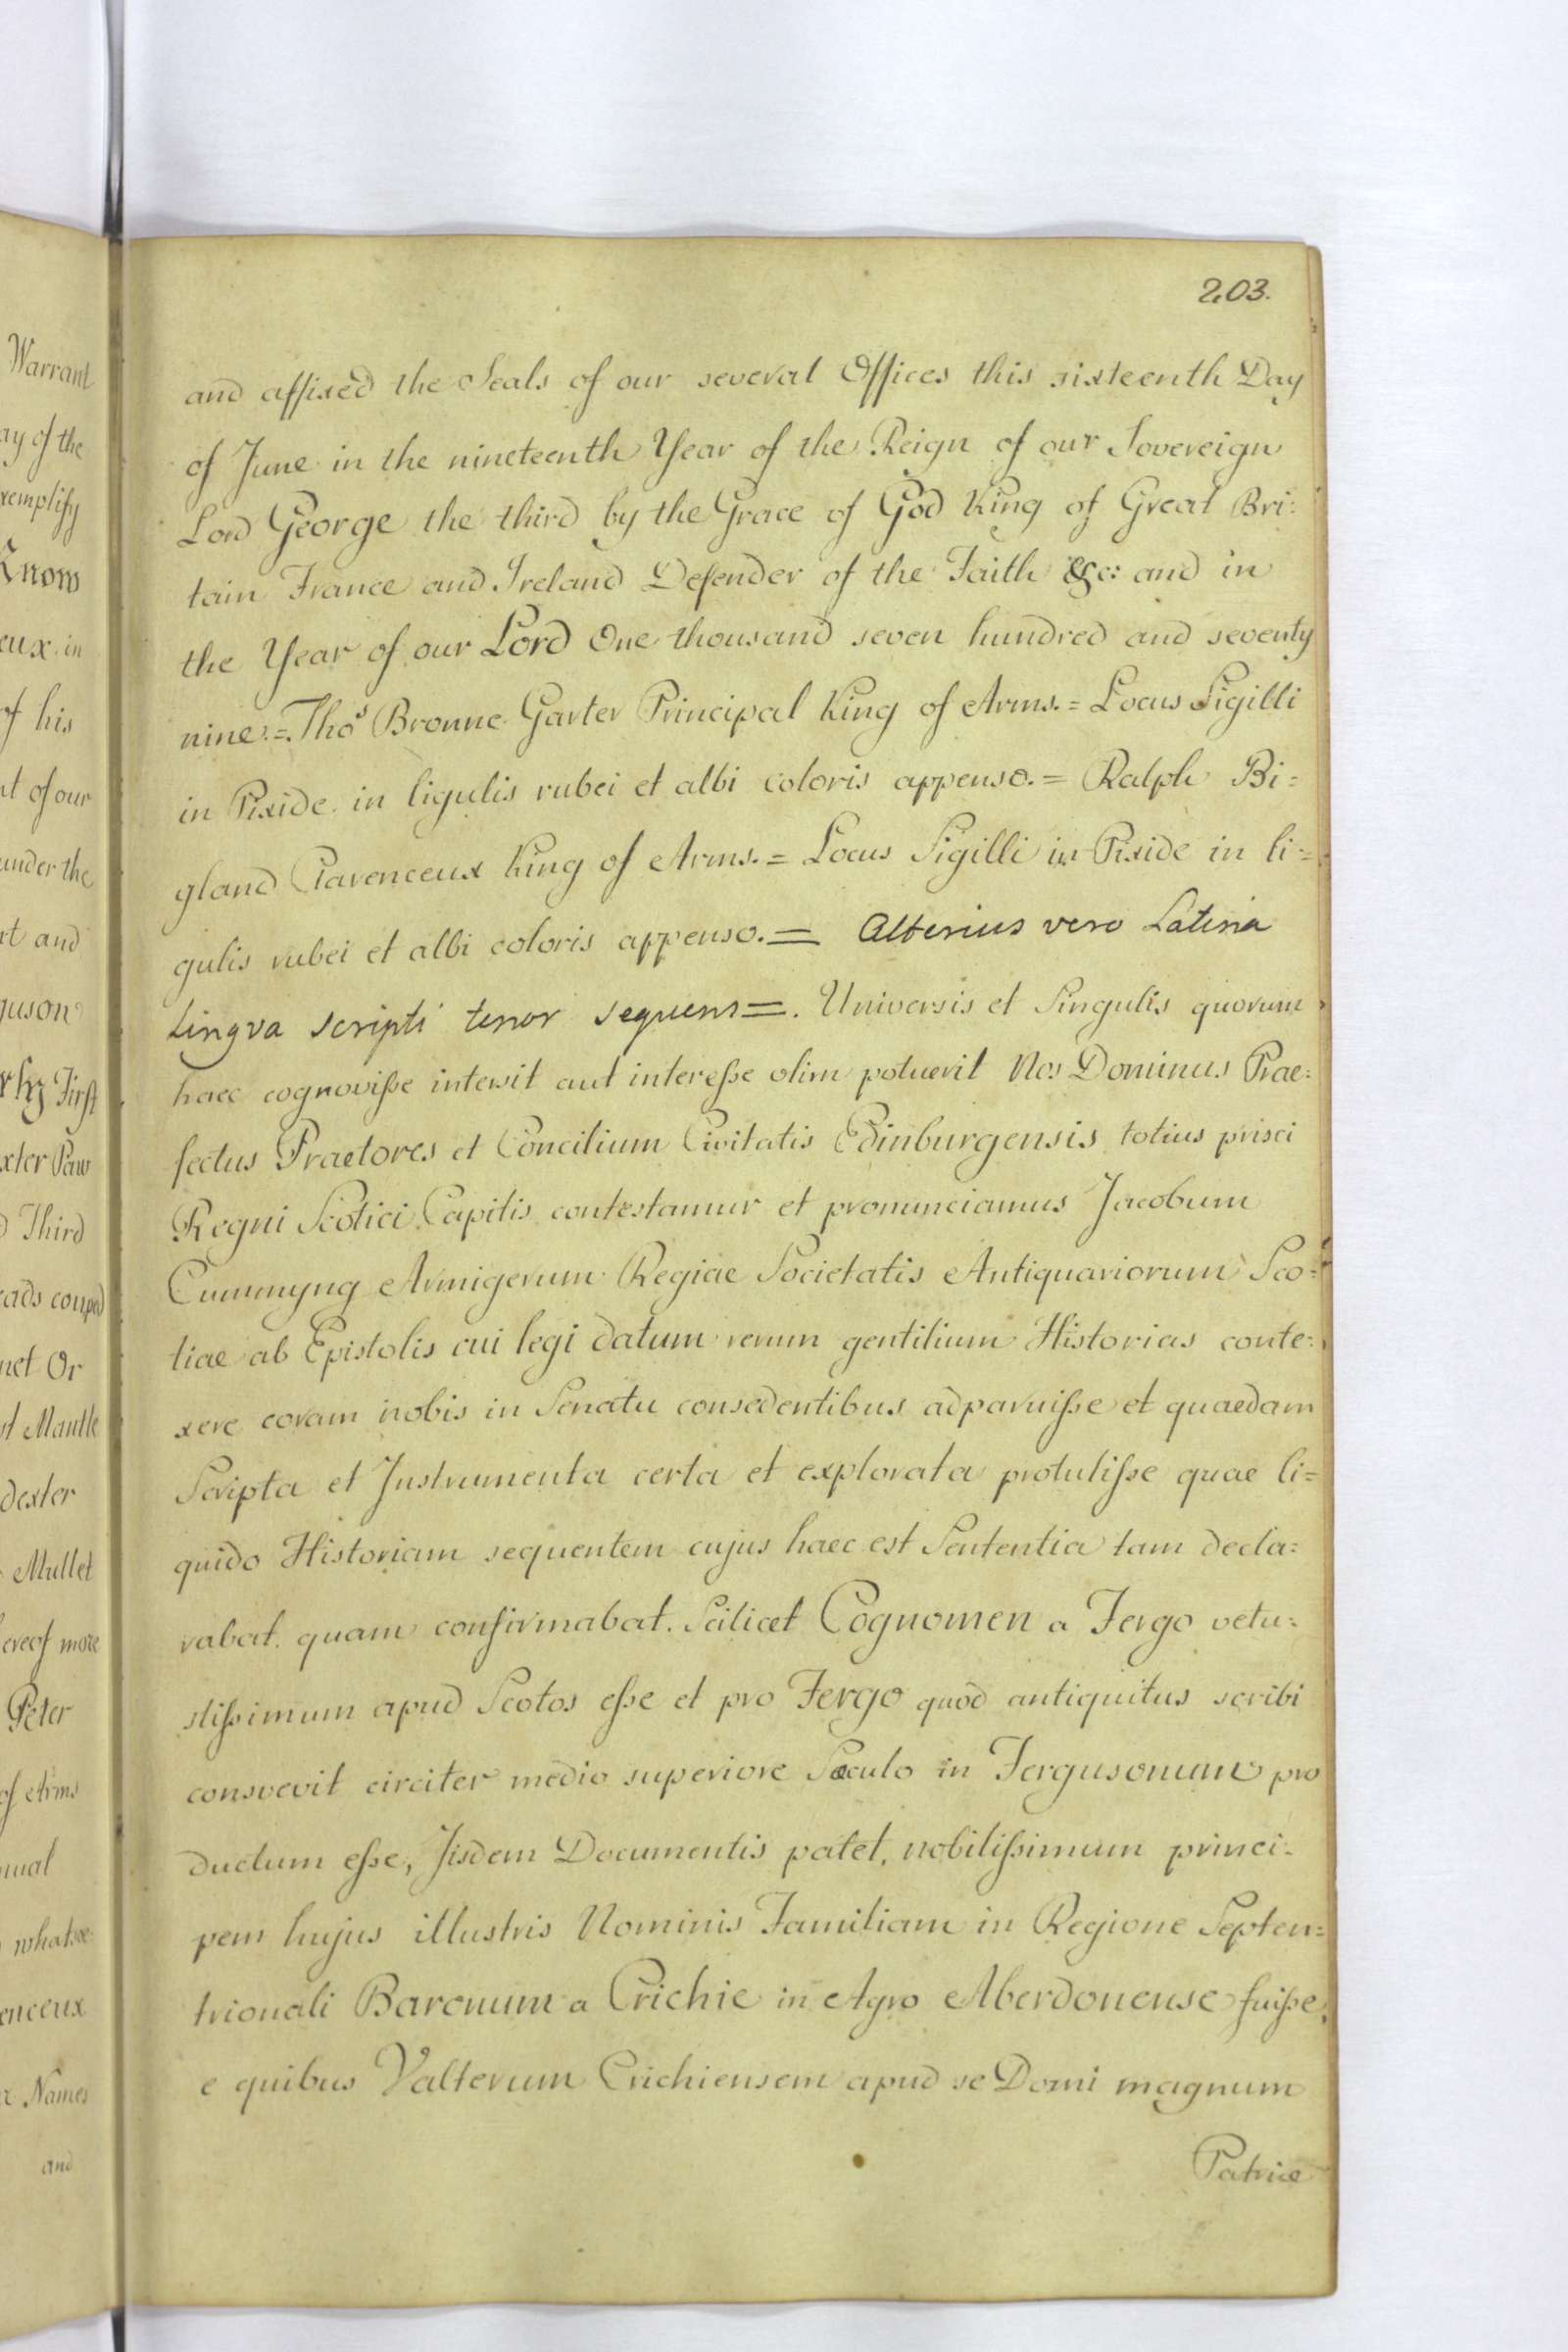 203.
and affixed the Seals of our several Offices this sixteenth Day
of June in the nineteenth Year of the Reign of our Sovereign
Lord George the third by the Grace of God King of Great Bri:
tain France and Ireland Defender of the Faith &c: and in
the Year of our Lord One thousand seven hundred and seventy
nine.=Thos Bronne Garter Principal King of Arms.= Locus Sigilli
in Pixide in ligulis rubei et albi coloris appenso.= Ralph Bi=
gland Clarenceux King of Arms.= Locus Sigilli in Pixide in li=
gulis rubei et albi coloris appenso.= Alterius vero Latina
Lingva scripti tenor sequens=. Universis et Singulis quorum
haec cognovisse intersit aut interesse olim potuerit Nos Dominus Prae:
fectus Praetores et Concilium Civitatis Edinburgensis totius prisci
Regni Scotici Capitis contestamur et pronunciamus Jacobum
Cummyng Armigerum Regiae Societatis Antiquariorum Sco=
tiae ab Epistolis cui legi datum rerum gentilium Historias conte:
xere coram nobis in Senatu consedentibus adparuisse et quaedam
Scripta et Instrumenta certa et explorata protulisse quae li=
quido Historiam sequentem cujus haec est Sententia tam decla:
rabat quam confirmabat. Scilicet Cognomen a Fergo vetu:
stissimum apud Scotos esse et pro Fergo quod antiquitus scribi
consvevit circiter medio superiore Sæculo in Fergusonum pro
ductum esse, Jisdem Documentis patet, nobilissimum princi:
pem hujus illustris Nominis Familiam in Regione Septen=
trionali Baronum a Crichie in Agro Aberdonense fuisse,
e quibus Valterum Crichiensem apud se Domi magnum
Patriæ
Warrant
ay of the
xemplify
Know
eux in
of his
nt of our
under the
rt and
guson
rly First
xter Paw
d Third
eads couped
net Or
st Mantle
dexter
Mullet
ereof more
Peter
of Arms
nual
whatsoe:
enceux
r Names
and